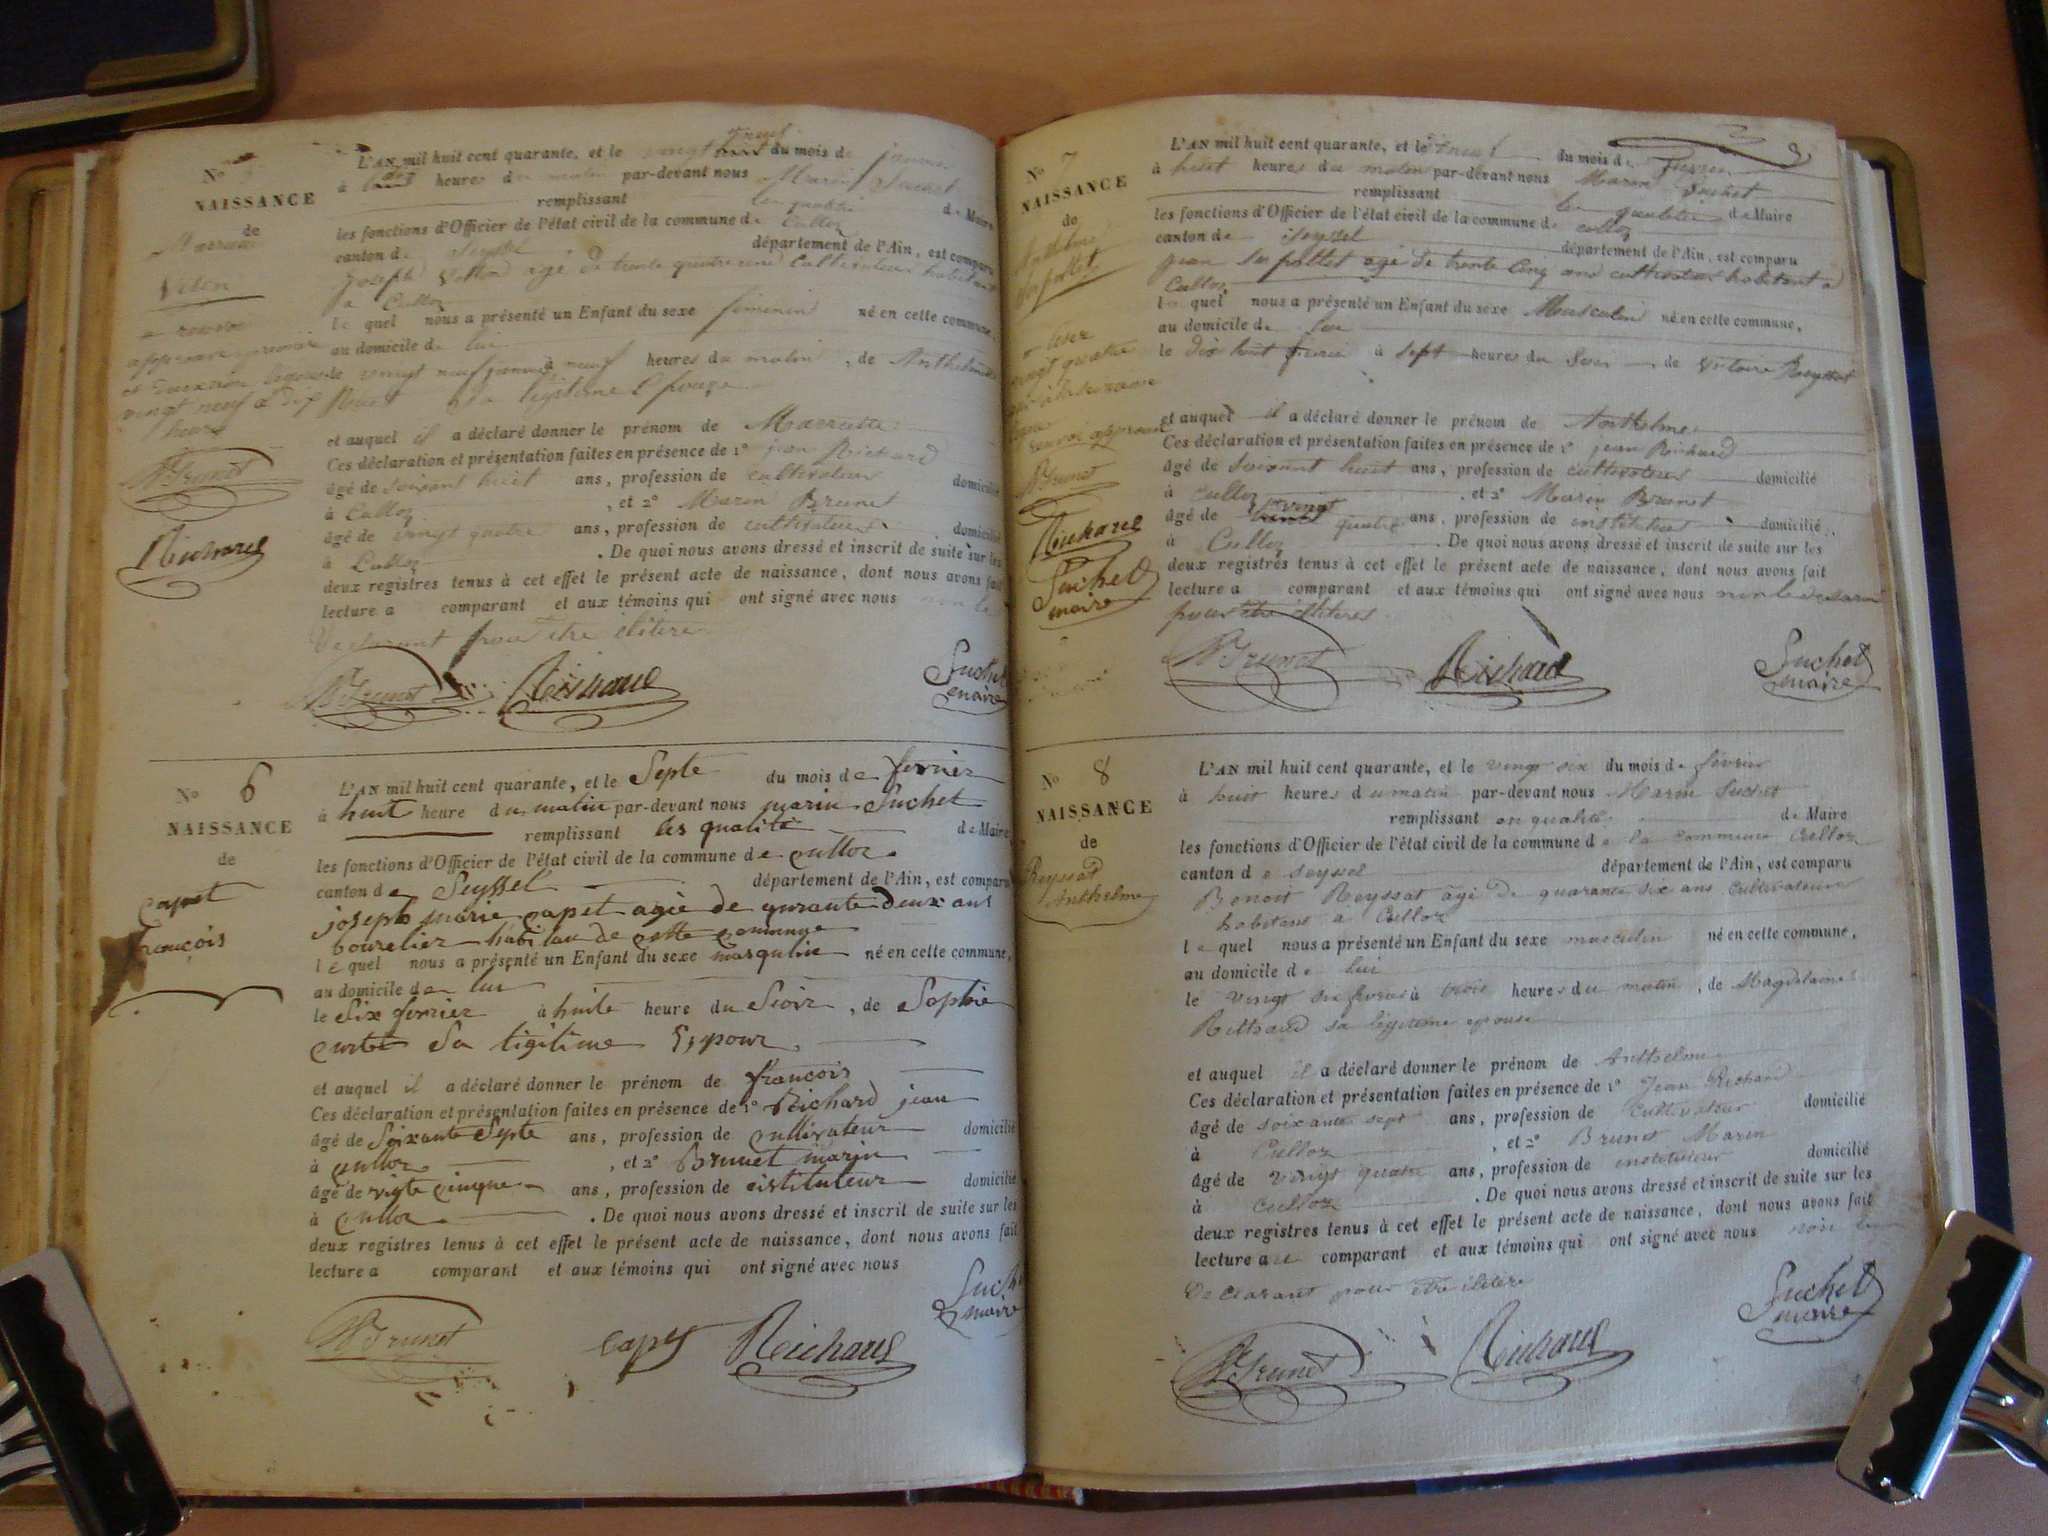 No
NAISSANCE
de
Veton
L'AN mil huit cent quarante, et le vingt neuf du mois de
à heures du matin par-devant nous Marin Suchet
remplissant les qualité de Maire
les fonctions d'Officier de l'état civil de la commune de Culloz
canton de Seyssel département de l'Ain, est comparu
Joseph agé de trente quatre ans Cultivateur habitant
a Culloz
le quel nous a présenté un Enfant du sexe feminin né en cette commune,
au domicile de lui
le vingt neuf janvier à neuf heures du matin, de Anthelmette
et auquel il a déclaré donner le prénom de
Ces déclaration et présentation faites en présence de 1° jean Richard
âgé de soixant huit ans, profession de cultivateur domicilié
à Culloz, et 2° Marin Brunet
âgé de vingt quatre ans, profession de cultivateur domicilié
à Culloz. De quoi nous avons dressé et inscrit de suite sur les
deux registres tenus à cet effet le présent acte de naissance, dont nous avons fait
lecture a comparant et aux témoins qui ont signé avec nous non le
Declarant pour être elitere
Brunet Richard Suchet
maire
No 6
NAISSANCE
de
Capet
françois
L'AN mil huit cent quarante, et le Septe du mois de fevrier
à huit heure du matin par-devant nous marin Suchet
remplissant les qualité de Maire
les fonctions d'Officier de l'état civil de la commune de culloz
canton de Seyssel département de l'Ain, est comparu
joseph marie capet agié de qurante deux ans
bourelier habitan de cette commune
le quel nous a présenté un Enfant du sexe masqulin né en cette commune,
au domicile de lui
le Six fevrier à huite heure du Soir, de Sophie
curtet Sa ligitime Epouz
et auquel il a déclaré donner le prénom de françois
Ces déclaration et présentation faites en présence de 1° Richard jean
âgé de Soixante Septe ans, profession de cultivateur domicilié
à culloz, et 2° Brunet marin
âgé de vigte cinque ans, profession de istituteur domicilié
à culloz. De quoi nous avons dressé et inscrit de suite sur les
deux registres tenus à cet effet le présent acte de naissance, dont nous avons fait
lecture a comparant et aux témoins qui ont signé avec nous
Brunet capet Richard Suchet
maire
No 7
NAISSANCE
de
L'AN mil huit cent quarante, et le du mois de fevrier
à huit heures du matin par-devant nous Marin Suchet
remplissant les qualités de Maire
les fonctions d'Officier de l'état civil de la commune de culloz
canton de Seyssel département de l'Ain, est comparu
jean agé de trente cinq ans cultivateur habitant a
Culloz
le quel nous a présenté un Enfant du sexe Masculin né en cette commune,
au domicile de lui
le dix huit fevrier à sept heures du Soir de Victoire Reyssat
et auquel il a déclaré donner le prénom de Anthelme
Ces déclaration et présentation faites en présence de 1° jean Richard
âgé de soixant huit ans, profession de cultivateur domicilié
à culloz, et 2° Marin Brunet
âgé de vingt quatre ans, profession de instituteur domicilié
à Culloz. De quoi nous avons dressé et inscrit de suite sur les
deux registres tenus à cet effet le présent acte de naissance, dont nous avons fait
lecture a comparant et aux témoins qui ont signé avec nous non le declarant
pour être elitere
Brunet Richard Suchet
maire
No 8
NAISSANCE
de
Reyssat
Anthelme
L'AN mil huit cent quarante, et le vingt six du mois de fevrier
à huit heures du matin par-devant nous Marin Suchet
remplissant en qualité de Maire
les fonctions d'Officier de l'état civil de la commune de la commune Culloz
canton de Seyssel département de l'Ain, est comparu
Benoit Reyssat âgé de quarante six ans cultivateur
habitant a Culloz
le quel nous a présenté un Enfant du sexe masculin né en cette commune,
au domicile de lui
le vingt six fevrier à trois heures du matin, de Magdelaine
sa légitime epouse
et auquel il a déclaré donner le prénom de Anthelme
Ces déclaration et présentation faites en présence de 1° Jean Richard
âgé de soixante sept ans, profession de cultivateur domicilié
à Culloz, et 2° Brunet Marin
âgé de vingt quatre ans, profession de instituteur domicilié
à culloz. De quoi nous avons dressé et inscrit de suite sur les
deux registres tenus à cet effet le présent acte de naissance, dont nous avons fait
lecture au comparant et aux témoins qui ont signé avec nous non le
Declarant pour être ilitere
Brunet Richard Suchet
maire